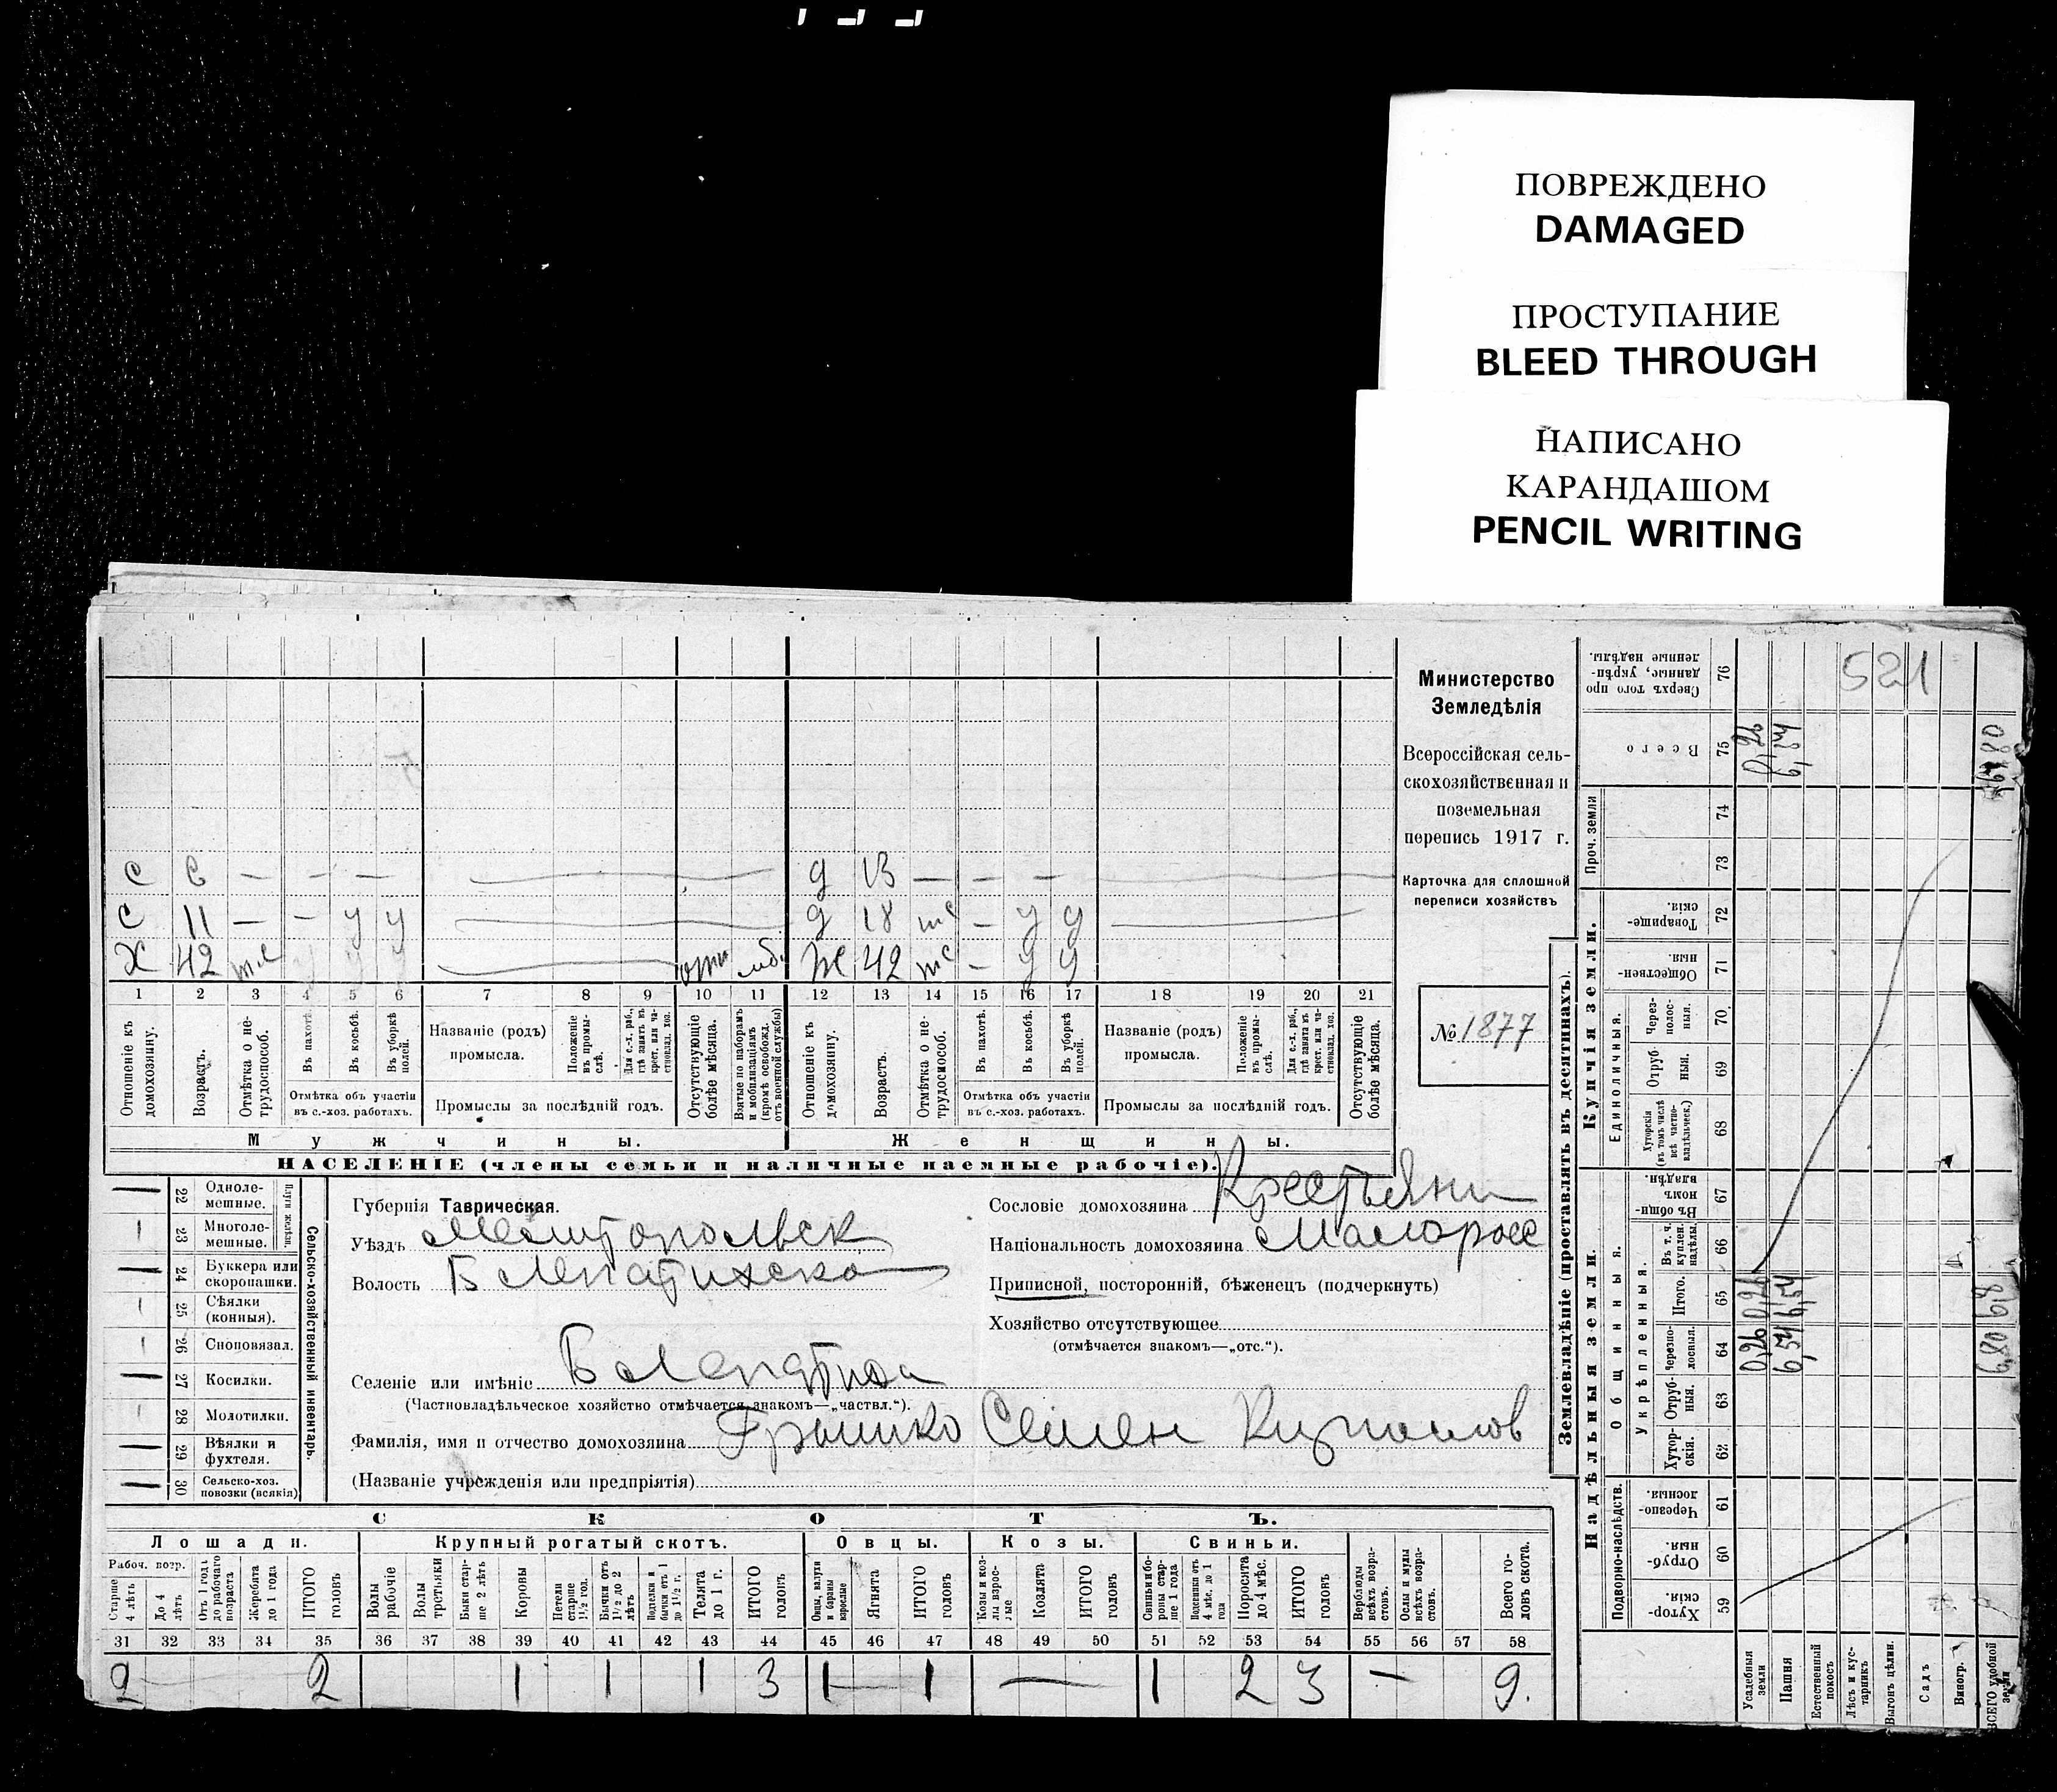 ПОВРЕЖДЕНО
DAMAGED
ПРОСТУПАНИЕ
BLEED THROUGH
НАПИСАНО
КАРАНДАШОМ
PENCIL WRITING
521
Министерство
Земледѣлія
Всероссійская сель-
скохозяйственная и
поземельная
перепись 1917 г.
Карточка для сплошной
переписи хозяйствъ
№ 1877
с 6 — — — д 13 — — —
с 11 — — у у д 18 — у у
Х 42 у у Ж 42 — у у
1 2 3 4 5 6 7 8 9 10 11 12 13 14 15 16 17 18 19 20 21
Отношеніе къ домохозяину.
Возрастъ.
Отмѣтка о не-трудоспособ.
Въ пахотѣ.
Въ косьбѣ.
Въ уборкѣ полей.
Отмѣтка объ участіи
въ с.-хоз. работахъ.
Названіе (родъ)
промысла.
Положеніе въ промы-слѣ.
Для с.-х. раб., гдѣ занятъ въ крест. или ча-стновлад. хоз.
Промыслы за послѣдній годъ.
Отсутствующіе болѣе мѣсяца.
Взятые по наборамъ и мобилизаціямъ (кромѣ освобожд. отъ военной службы)
Отношеніе къ домохозяину.
Возрастъ.
Отмѣтка о не-трудоспособ.
Въ пахотѣ.
Въ косьбѣ.
Въ уборкѣ полей.
Отмѣтка объ участіи
въ с.-хоз. работахъ.
Названіе (родъ)
промысла.
Положеніе въ промы-слѣ.
Для с.-х. раб., гдѣ занята въ крест. или ча-стновлад. хоз.
Промыслы за послѣдній годъ.
Отсутствующіе болѣе мѣсяца.
Мужчины. Женщины.
НАСЕЛЕНІЕ (члены семьи и наличные наемные рабочіе).
Сельско-хозяйственный инвентарь.
Плуги желѣз.
22 Одноле-мешные.
23 Многоле-мешные.
24 Буккера или скоропашки.
25 Сѣялки (конныя).
26 Сноповязал.
27 Косилки.
28 Молотилки.
29 Вѣялки и фухтеля.
30 Сельско-хоз. повозки (всякія)
Губернія Таврическая.
Уѣздъ Мелитопольск
Волость Б Лепатихска
Селеніе или имѣніе Б Лепатиха
(Частновладѣльческое хозяйство отмѣчается знакомъ—„частвл.“).
Фамилія, имя и отчество домохозяина Гришко Семен
(Названіе учрежденія или предпріятія)
Сословіе домохозяина Крестьянин
Національность домохозяина Малоросс
Приписной, посторонній, бѣженец (подчеркнуть)
Хозяйство отсутствующее
(отмѣчается знакомъ—„отс.“).
СКОТЪ.
Лошади. Крупный рогатый скотъ. Овцы. Козы. Свиньи.
Рабоч. возр.
Старше 4 лѣтъ
До 4 лѣтъ
Отъ 1 года до рабочаго возраста
Жеребята до 1 года
ИТОГО головъ
Волы рабочіе
Волы третьяки
Быки стар-ше 2 лѣтъ
Коровы
Нетели старше 1½ год.
Бычки отъ 1½ до 2 лѣтъ
Подтелки и бычки отъ 1 до 1½ г.
Телята до 1 г.
ИТОГО головъ
Овцы, валухи и бараны взрослые
Ягнята
ИТОГО головъ
Козы и коз-лы взрос-лые
Козлята
ИТОГО головъ
Свиньи и бо-ровы стар-ше 1 года
Подсвинки отъ 4 мѣс. до 1 года
Поросята до 4 мѣс.
ИТОГО головъ
Верблюды всѣхъ возра-стовъ.
Ослы и мулы всѣхъ возра-стовъ.
Всего го-ловъ скота.
31 32 33 34 35 36 37 38 39 40 41 42 43 44 45 46 47 48 49 50 51 52 53 54 55 56 57 58
2 2 1 1 1 3 1 1 — 1 2 3 — 9.
Землевладѣніе (проставлять въ десятинахъ).
Надѣльныя земли. Купчія земли.
Подворно-наслѣдств. Общинныя. Единоличныя. Проч. земли
Укрѣпленныя.
59 Хутор-скія.
60 Отруб-ныя
61 Черезпо-лосныя.
62 Хутор-скія.
63 Отруб-ныя.
64 Черезпо-лосныя.
65 Итого.
66 Въ т. ч. куплен. надѣлы.
67 Въ общи-ном владѣн.
68 Хуторскія (въ томъ числѣ всѣ частно-владѣльческ.)
69 Отруб-ныя.
70 Через-полос-ныя.
71 Обществен-ныя
72 Товарище-скія.
73
74
75 Всего
76 Сверхъ того про-данные, укрѣп-ленные надѣлы.
Усадебныя земли 0,26 0,26 0,26
Пашня 6,54 6,54 6,54
Естественный покосъ
Лѣсъ и кус-тарникъ
Выгонъ цѣлин.
Садъ
Виногр.
ВСЕГО удобной земли 6,80 6,8 6,80